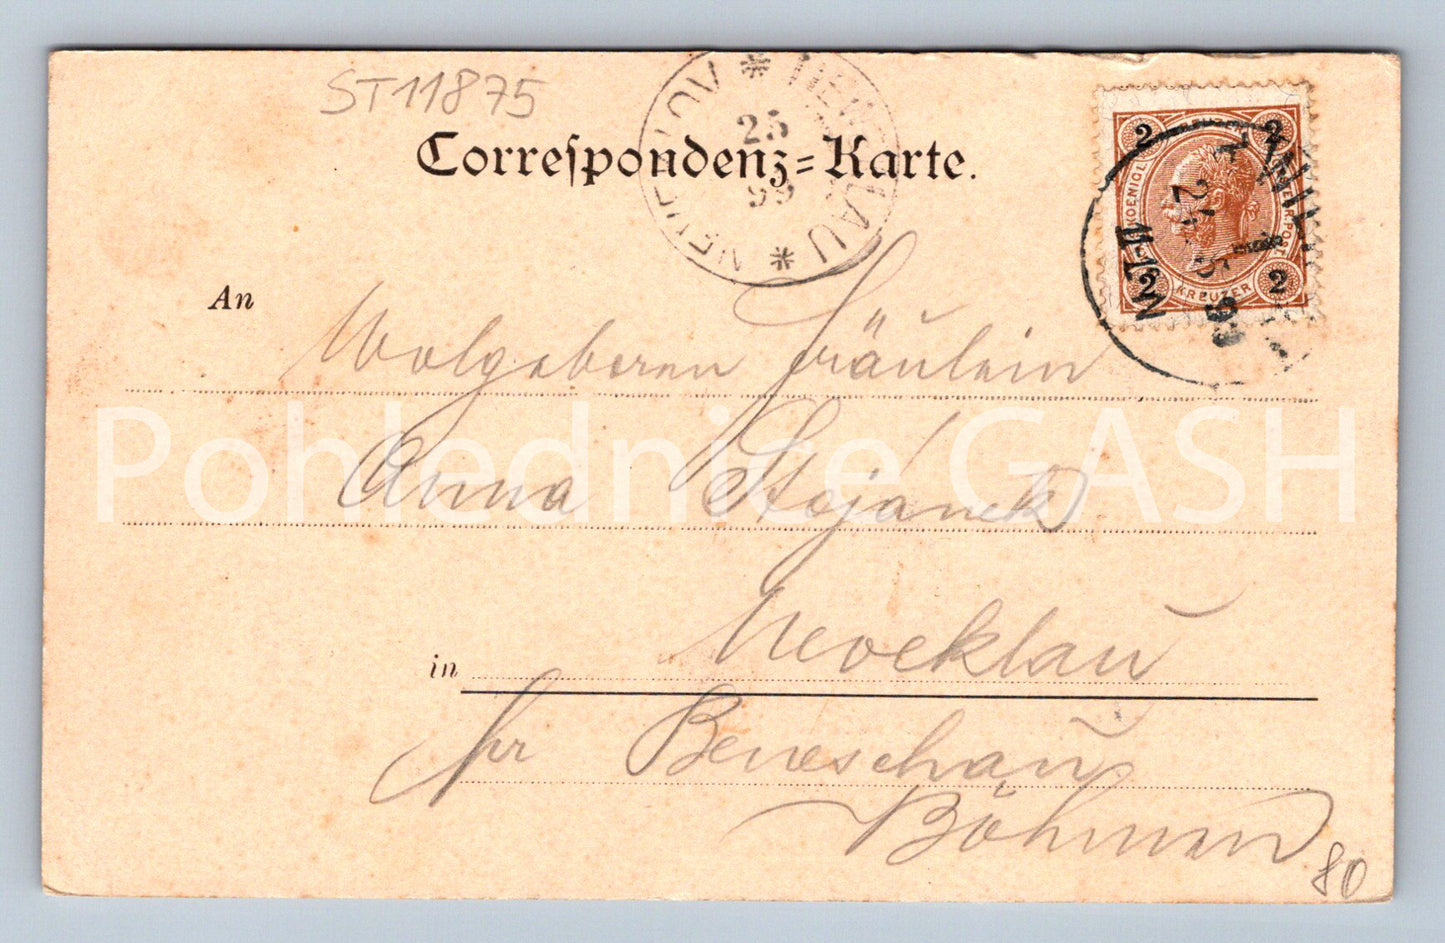 ST11875
NEWEKLAU * NEVEKLOV *
25
99
Correſpondenz=Karte.
2 2
KREUZER
2 2
24 5 99
An
Wolgeboren Fräulein
Anna Stojánek
Pohlednice GASH
in Neveklau
pr Beneschau
Böhmen
80